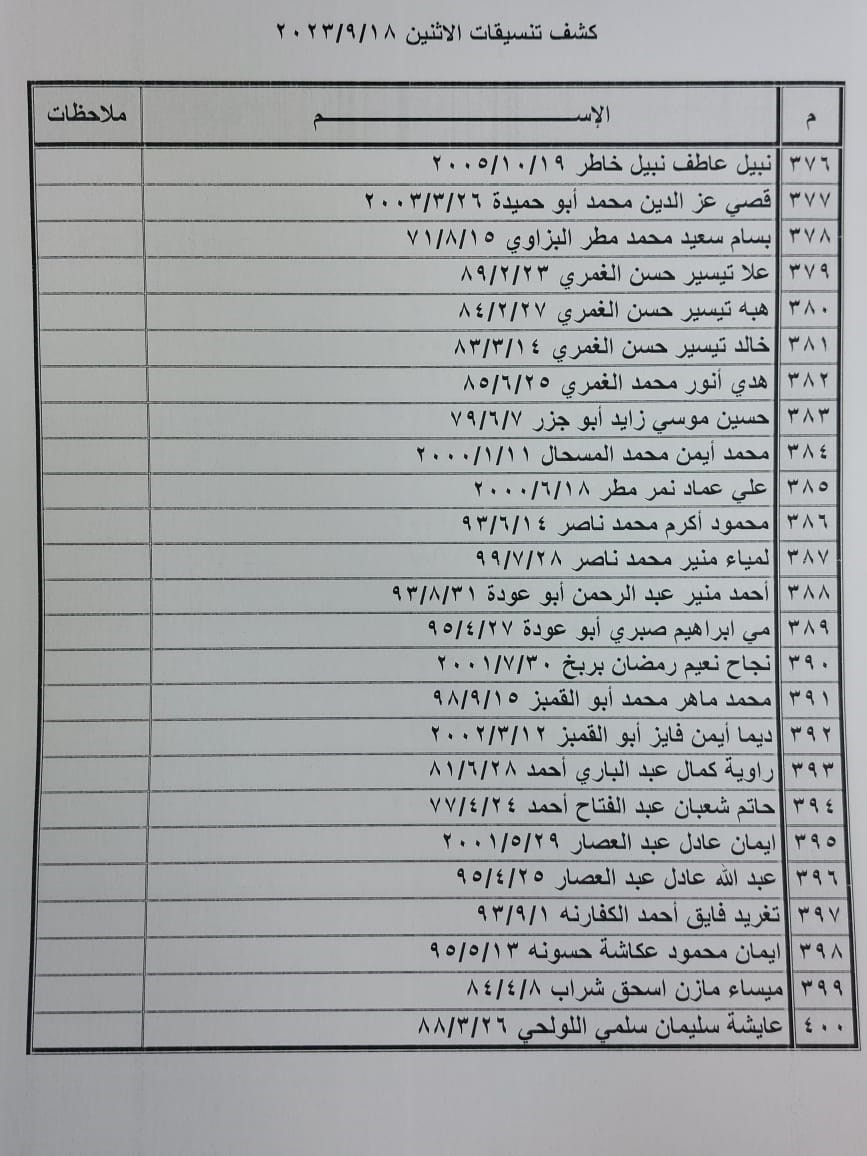 كشف تنسيقات الاثنين ٢٠٢٣/٩/١٨
م الإســــــم ملاحظات
٣٧٦ نبيل عاطف نبيل خاطر ٢٠٠٥/١٠/١٩
٣٧٧ قصي عز الدين محمد أبو حميدة ٢٠٠٣/٣/٢٦
٣٧٨ بسام سعيد محمد مطر البزاوي ٧١/٨/١٥
٣٧٩ علا تيسير حسن الغمري ٨٩/٢/٢٣
٣٨٠ هبه تيسير حسن الغمري ٨٤/٢/٢٧
٣٨١ خالد تيسير حسن الغمري ٨٣/٣/١٤
٣٨٢ هدي أنور محمد الغمري ٨٥/٦/٢٥
٣٨٣ حسين موسي زايد أبو جزر ٧٩/٦/٧
٣٨٤ محمد أيمن محمد المسحال ٢٠٠٠/١/١١
٣٨٥ علي عماد نمر مطر ٢٠٠٠/٦/١٨
٣٨٦ محمود أكرم محمد ناصر ٩٣/٦/١٤
٣٨٧ لمياء منير محمد ناصر ٩٩/٧/٢٨
٣٨٨ أحمد منير عبد الرحمن أبو عودة ٩٣/٨/٣١
٣٨٩ مي ابراهيم صبري أبو عودة ٩٥/٤/٢٧
٣٩٠ نجاح نعيم رمضان بربخ ٢٠٠١/٧/٣٠
٣٩١ محمد ماهر محمد أبو القمبز ٩٨/٩/١٥
٣٩٢ ديما أيمن فايز أبو القمبز ٢٠٠٢/٣/١٢
٣٩٣ راوية كمال عبد الباري أحمد ٨١/٦/٢٨
٣٩٤ حاتم شعبان عبد الفتاح أحمد ٧٧/٤/٢٤
٣٩٥ ايمان عادل عبد العصار ٢٠٠١/٥/٢٩
٣٩٦ عبد الله عادل عبد العصار ٩٥/٤/٢٥
٣٩٧ تغريد فايق أحمد الكفارنه ٩٣/٩/١
٣٩٨ ايمان محمود عكاشة حسونه ٩٥/٥/١٣
٣٩٩ ميساء مازن اسحق شراب ٨٤/٤/٨
٤٠٠ عايشة سليمان سلمي اللولحي ٨٨/٣/٢٦